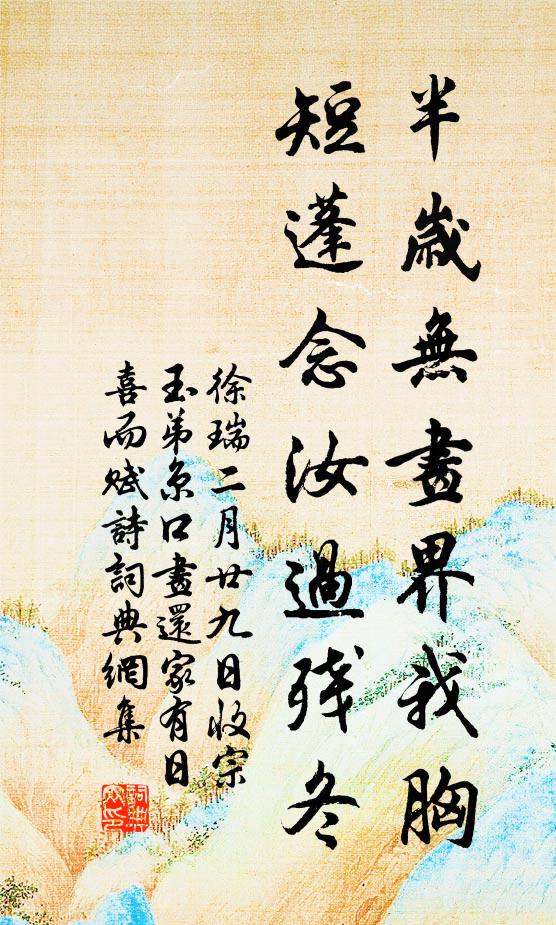 半歲無畫界我胸
短蓬念汝過殘冬
徐瑞二月廿九日收宗
玉弟京口畫還家有日
喜而赋詩詞典網集